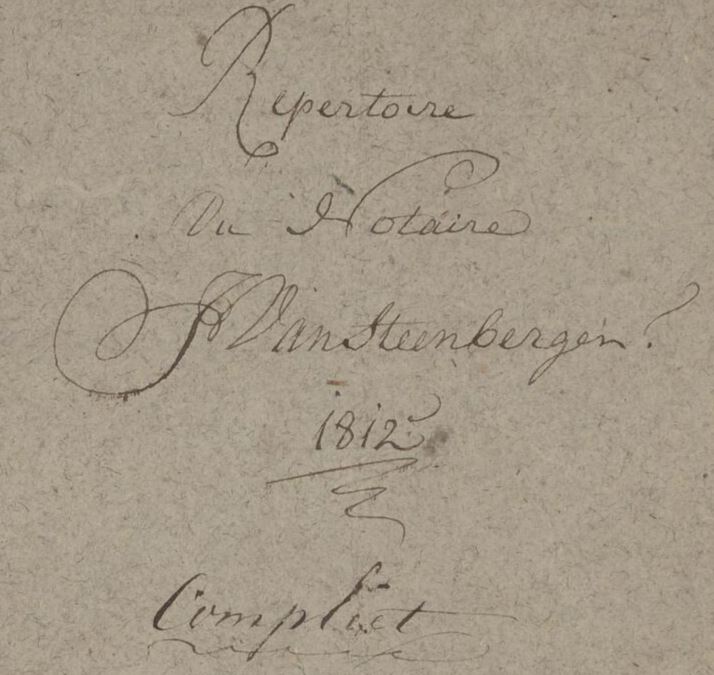 Repertoire
Du Notaire
J VanSteenbergen.
1812
Compleet